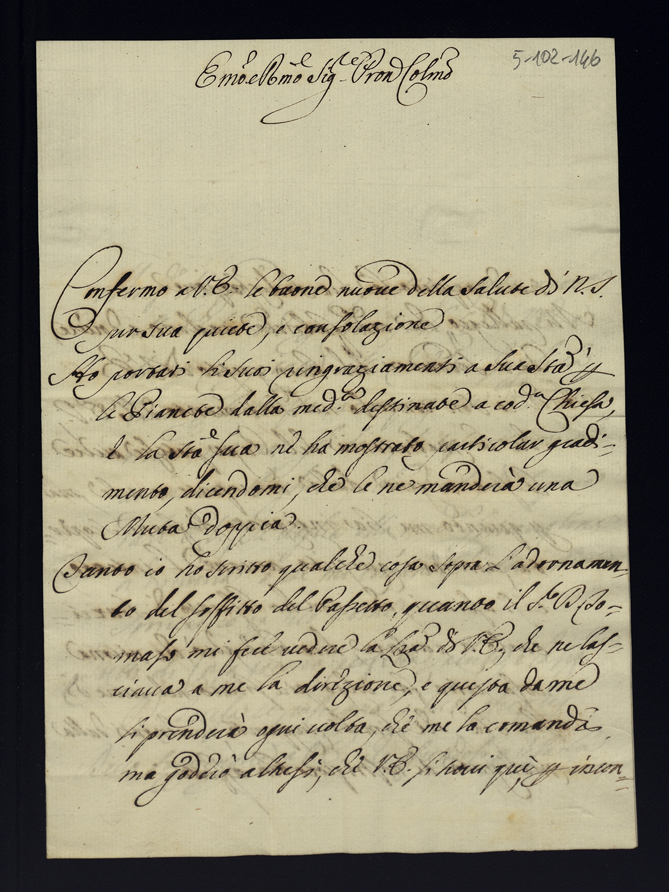 5-102-146
Emo. e Rmo. Sig.re Pron Colmo
Confermo a V.E. le buone nuove della salute di N.S.
per sua quiete, e consolazione
Ho portati li suoi ringraziamenti a Sua Stà p
le Pianete dalla med.a destinate a cod.a Chiesa,
e la Stà sua nè ha mostrato particolar gradi=
mento, dicendomi, che le nè manderà una
Muta doppia
Tanto io hò scritto qualche cosa sopra l'adornamen=
to del soffitto del Passetto, quanto il S.r D. To=
maso mi fece vedere la di V.E., che ne las=
ciava a me la direzione, e questa da me
si prenderà ogni volta, che me la comanda,
ma goderò altresi, che V.E. si trovi quì, p incon=